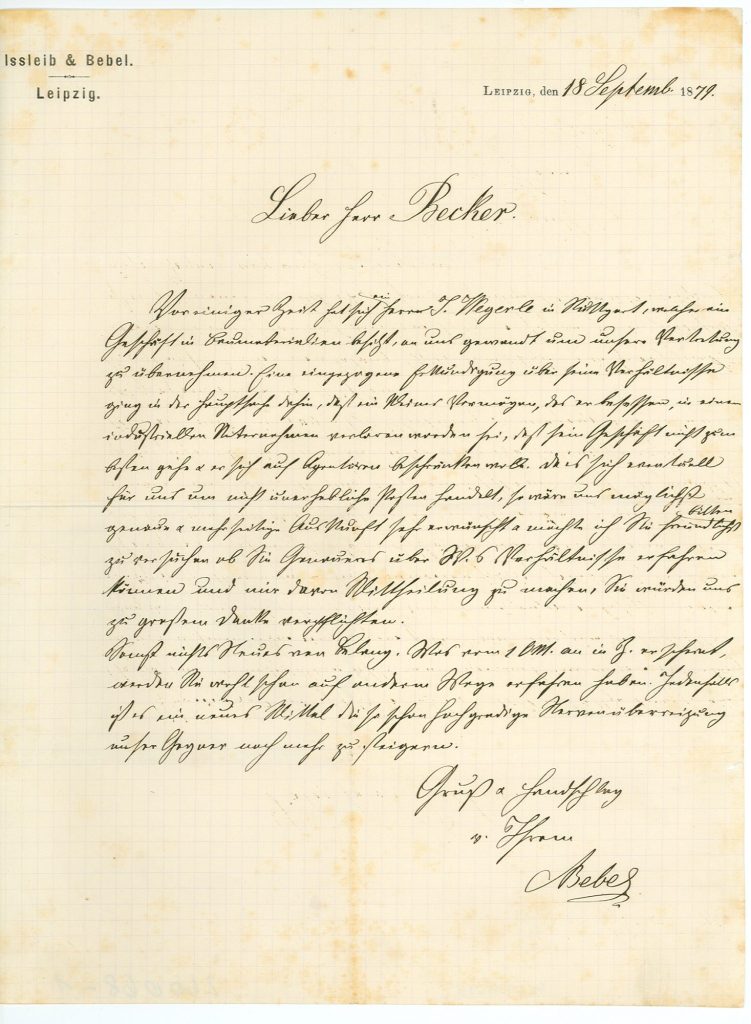 Issleib & Bebel.
Leipzig.
LEIPZIG, den 18 Septemb. 1879.
Lieber Herr Becker.
Vor einiger Zeit hat sich ein Herr J. Wegerle in Stuttgart, welcher ein
Geschäft in Baumaterialien besitzt, an uns gewandt um unsere Vertretung
zu übernehmen. Eine eingezogene Erkundigung über seine Verhältnisse
ging in der Hauptsache dahin, daß ein kleines Vermögen, das er besessen, in einem
industriellen Unternehmen verloren worden sei, daß sein Geschäft nicht zum
besten gehe & er sich auf Agenturen beschränken wolle. Da es sich eventuell
für uns um nicht unerhebliche Posten handelt, so wäre uns möglichst
genaue & mehrseitige Auskunft sehr erwünscht & möchte ich Sie freundlichst bitten
zu versuchen ob Sie Genaueres über W.s Verhältnisse erfahren
können und mir davon Mittheilung zu machen, Sie würden uns
zu großem Danke verpflichten.
Sonst nichts Neues von Belang. Was vom 1 Okt. an in Z. erscheint,
werden Sie wohl schon auf anderm Wege erfahren haben. Jedenfalls
ist es ein neues Mittel die so schon hochgradige Nervenüberreizung
unser Gegner noch mehr zu steigern.
Gruß & Handschlag
v. Ihrem
ABebel